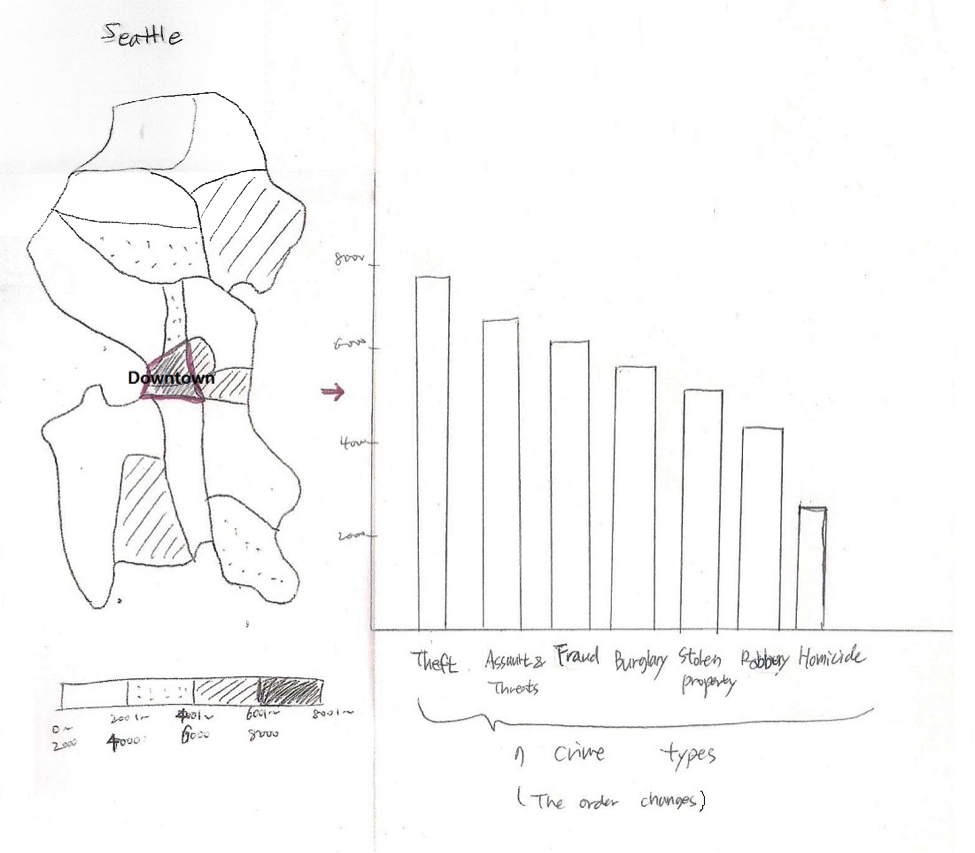 Seattle
Downtown
0~
2000
2001~
4000
4001~
6000
6001~
8000
8001~
8000
6000
4000
2000
Theft
Assault &
Threats
Fraud
Burglary
Stolen
property
Robbery
Homicide
n crime types
(The order changes)